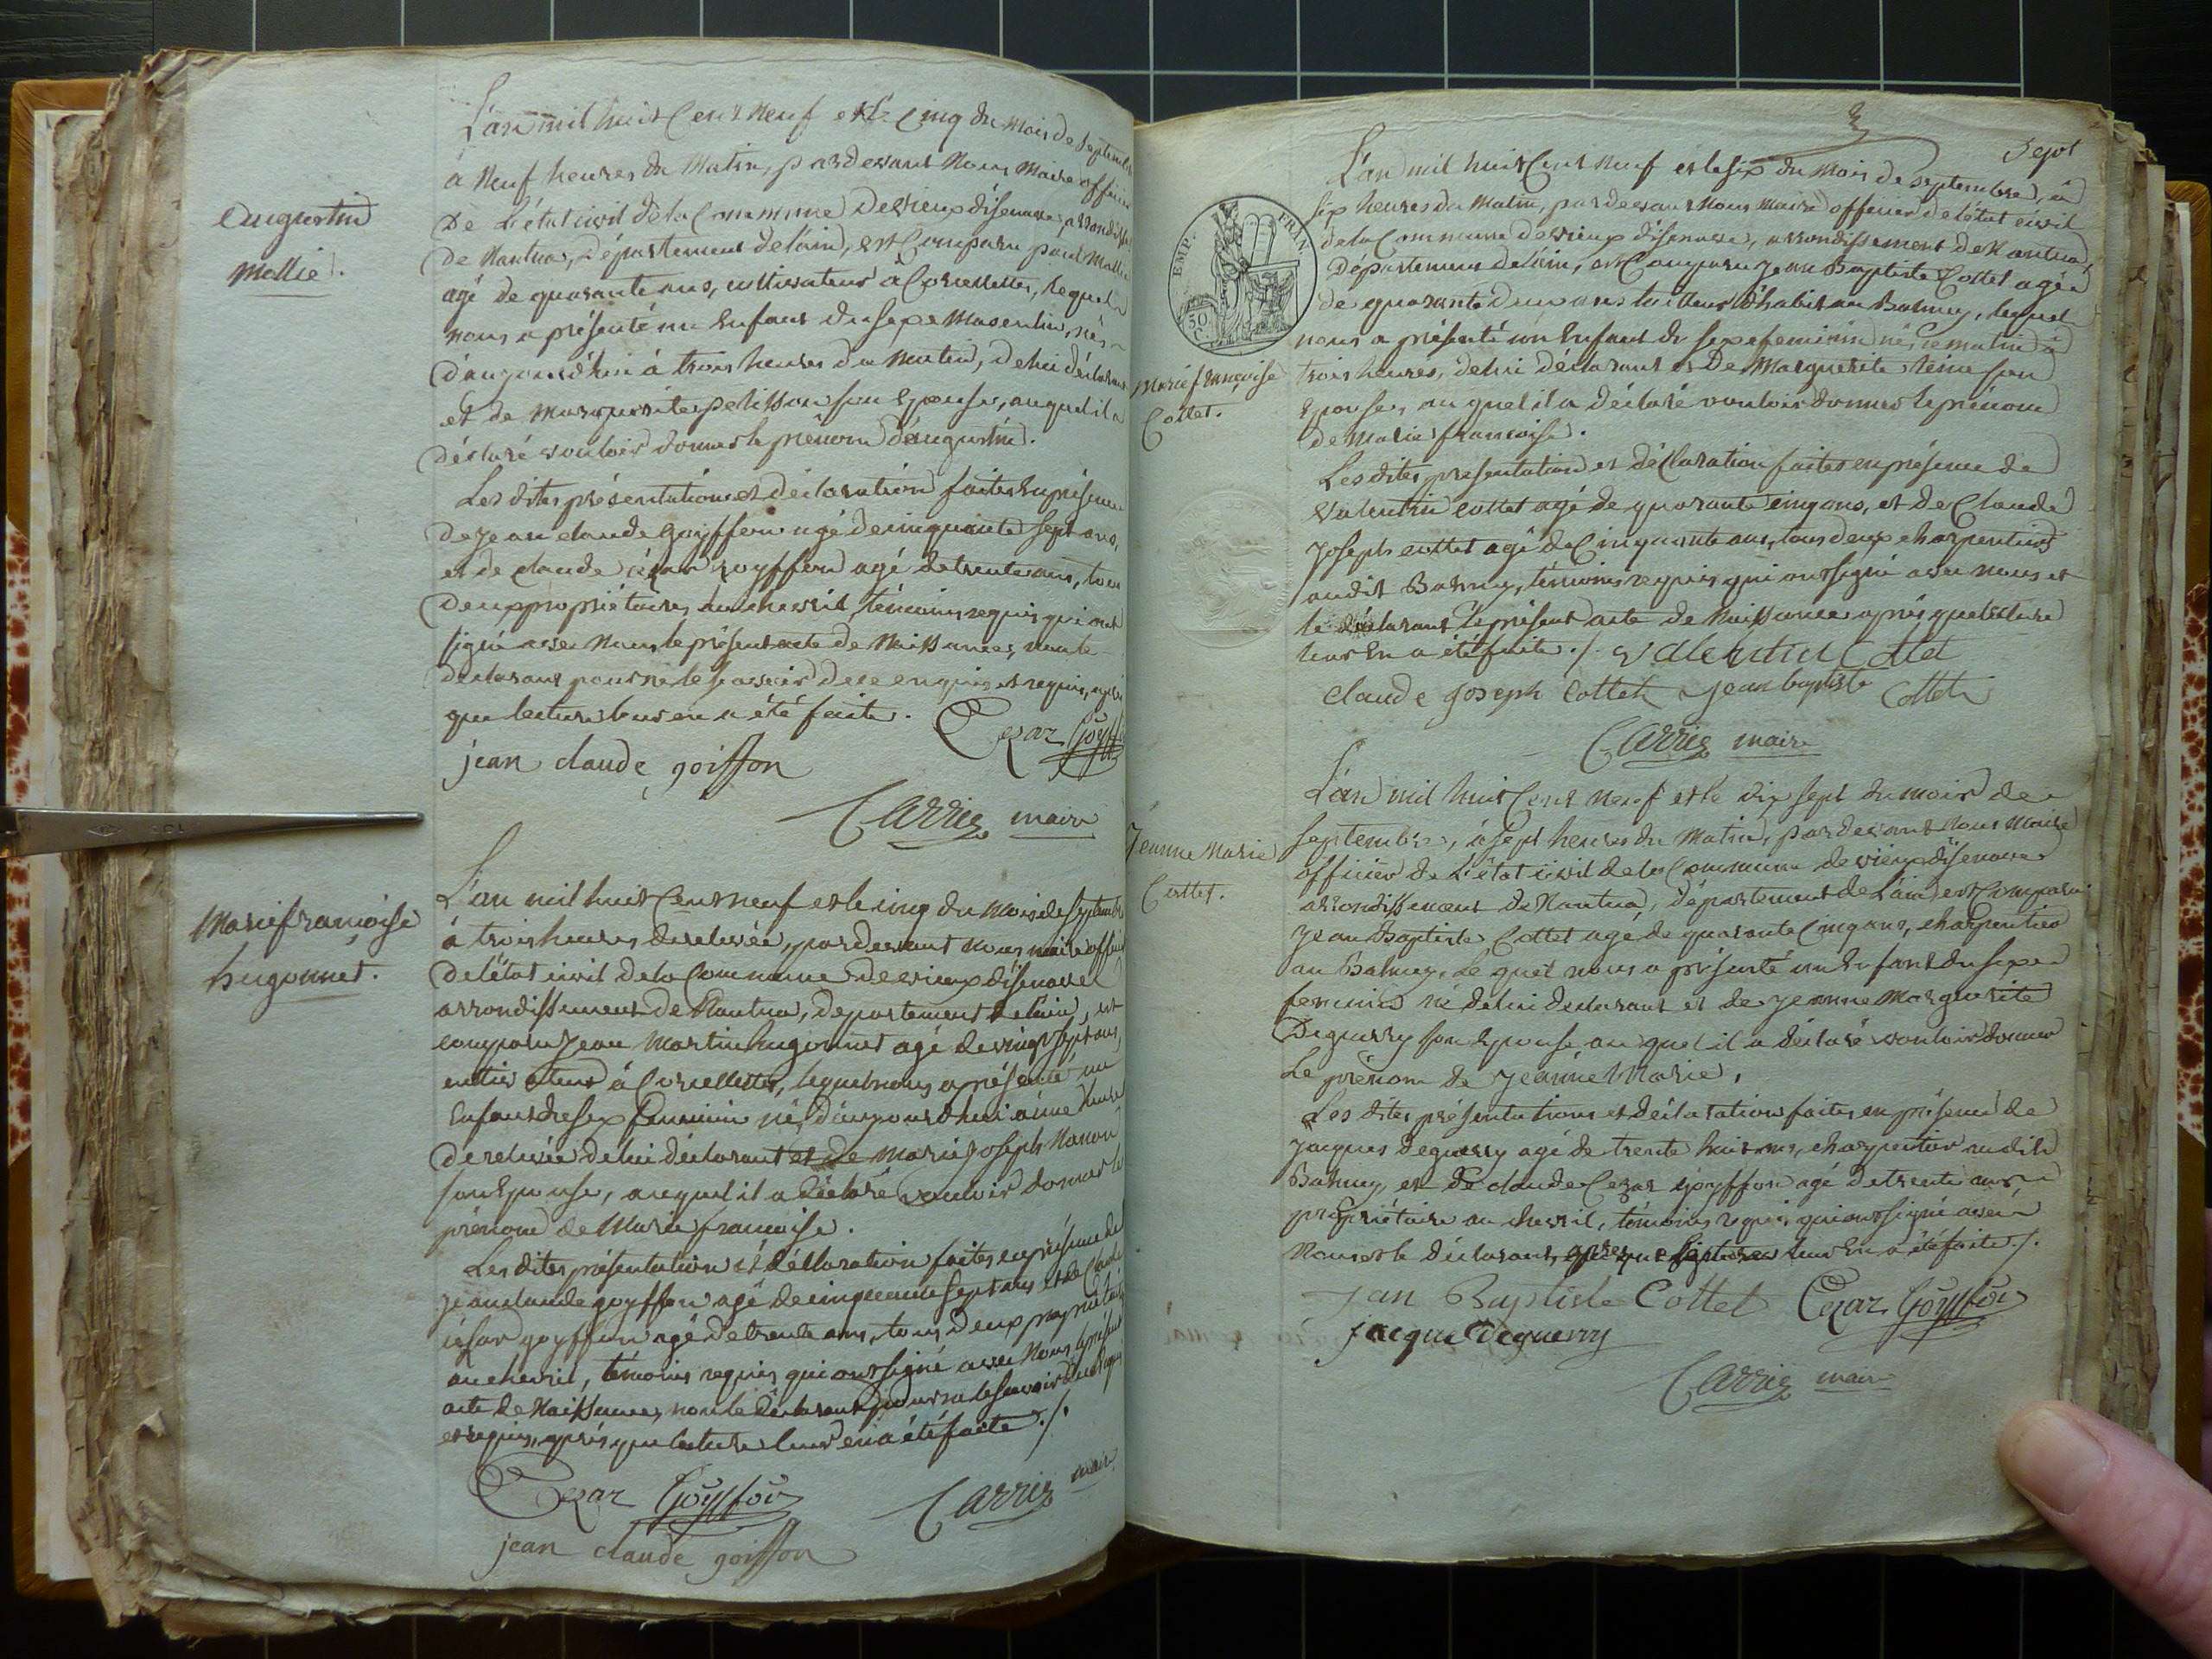 L'an mil huit Cent Neuf et le Cinq du Mois de Septembre
à Neuf heures du Matin, pardevant Nous Maire officier
De L'état civil de la Commune De vieux d'isenave, arrondisst
de Nantua, Département de l'ain, est Comparu paul Mollie
agé de quarante ans, cultivateur à Corcellette, lequel
nous a présenté un Enfant du sexe Masculin, né
D'aujourd'hui à trois heures du Matin, de lui déclarant
et de Marguerite pelisson son Epouse, auquel il a
déclaré vouloir donner le prénom d'augustin.
augustin
Mollie.
Les dites présentation et déclaration faites en présence
de jean claude goyffon agé de cinquante sept ans,
et de claude césar goyffon agé de trente ans, tous
deux propriétaires au chevril, témoins requis qui ont
signé avec Nous le présent acte de Naissance, non le
déclarant pour ne le savoir de ce enquis et requis, après
que lecture leur en a été faite.
Cezar Goyff
jean claude goiffon
Carrier maire
L'an mil huit Cent neuf et le cinq du Mois de septembre
à trois heures de relevée, pardevant Nous maire officier
De l'état civil de la Commune de vieux d'isenave
arrondissement De Nantua, département de l'ain, est
comparu Jean Martin hugonnet agé de vingt sept ans,
cultivateur à Corcellette, lequel nous a présenté un
Enfant du sexe feminin né D'aujourd'hui à une heure
De relevée de lui déclarant et de Marie Joseph
son Epouse, auquel il a déclaré vouloir donner le
prénom de Marie francoise.
Marie francoise
hugonnet.
Les dites présentation et déclaration faites en présence de
jean claude goyffon agé de cinquante sept ans et de Claude
césar goyffon agé de trente ans, tous deux propriétaires
au chevril, témoins requis qui ont signé avec Nous le présent
acte de Naissance, non le déclarant pour ne le savoir de ce enquis
et requis, après que lecture leur en a été faite ./.
Cezar Goyffon Carrier maire
jean claude goiffon
Sept
L'an mil huit Cent Neuf et le six du Mois de septembre, à
six heures du Matin, pardevant Nous Maire officier de l'état civil
de la Commune de vieux d'isenave, arrondissement de Nantua,
Département de l'ain, est Comparu Jean Baptiste Cottet agé
de quarante deux ans tailleur d'habit au Balmey, lequel
nous a présenté un Enfant du sexe feminin né ce matin à
trois heures, de lui déclarant et De Marguerite son
Epouse, au quel il a déclaré vouloir donner le prénom
de Marie francoise.
EMP. FRAN.
50 C.
Marie francoise
Cottet.
Les dites presentation et déclaration faites en présence de
valentin cottet agé de quarante cinq ans, et de Claude
Joseph cottet agé de Cinquante ans, tous deux charpentiers
audit Balmey, témoins requis qui ont signé avec nous et
le déclarant le présent acte de Naissance après que lecture
leur En a été faite ./. valentin Cottet
claude joseph Cottet jean baptiste Cottet
Carrier maire
L'an mil huit Cent Neuf et le dix sept du mois de
septembre, à sept heures du Matin, pardevant Nous Maire
officier de L'état civil de la Commune de vieux d'isenave
arrondissement de Nantua, département de L'ain est Comparu
Jean Baptiste Cottet agé de quarante Cinq ans, charpentier
au Balmey, Le quel nous a présenté un Enfant du sexe
feminin né de lui déclarant et de jeanne Marguerite
Deguerry son Epouse au quel il a déclaré vouloir donner
Le prénom de jeanne Marie,
Jeanne Marie
Cottet.
Les dites présentations et déclaration faites en présence de
jacques deguerry agé de trente huit ans, charpentier audit
Balmey, et De claude Cezar goyffon agé de trente ans
propriétaire au chevril, témoins requis qui ont signé avec
Nous et le déclarant, après que lecture leur En a été faite ./.
jan Baptiste Cottet Cezar Goyffon
jacque deguerry
Carrier maire